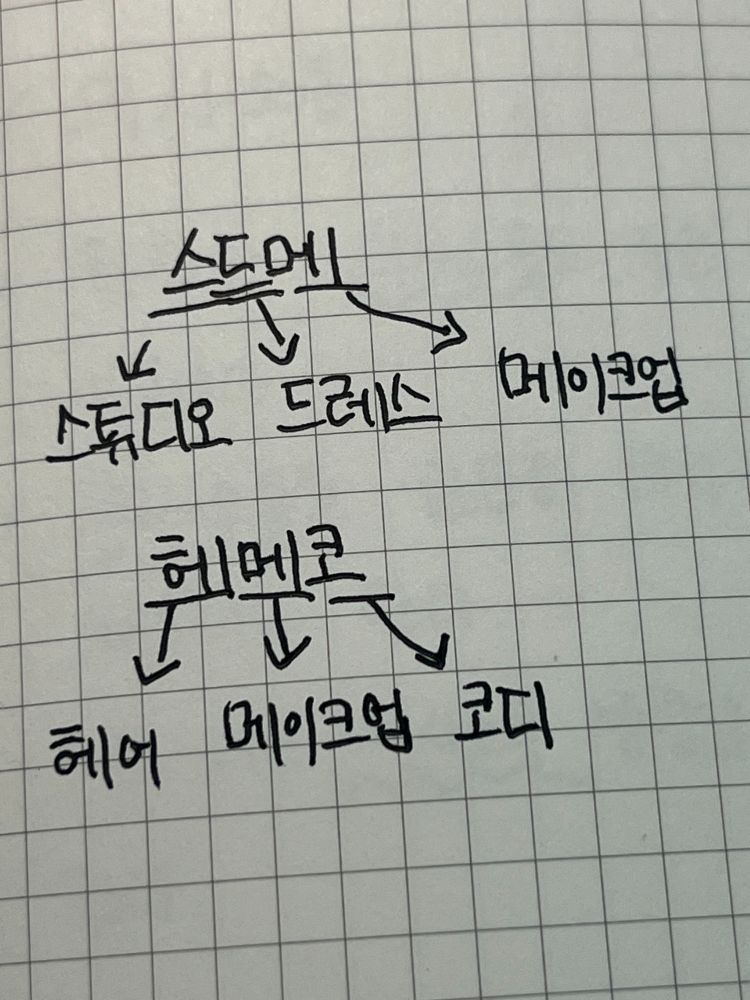 스드메
스튜디오 드레스 메이크업
헤메코
헤어 메이크업 코디